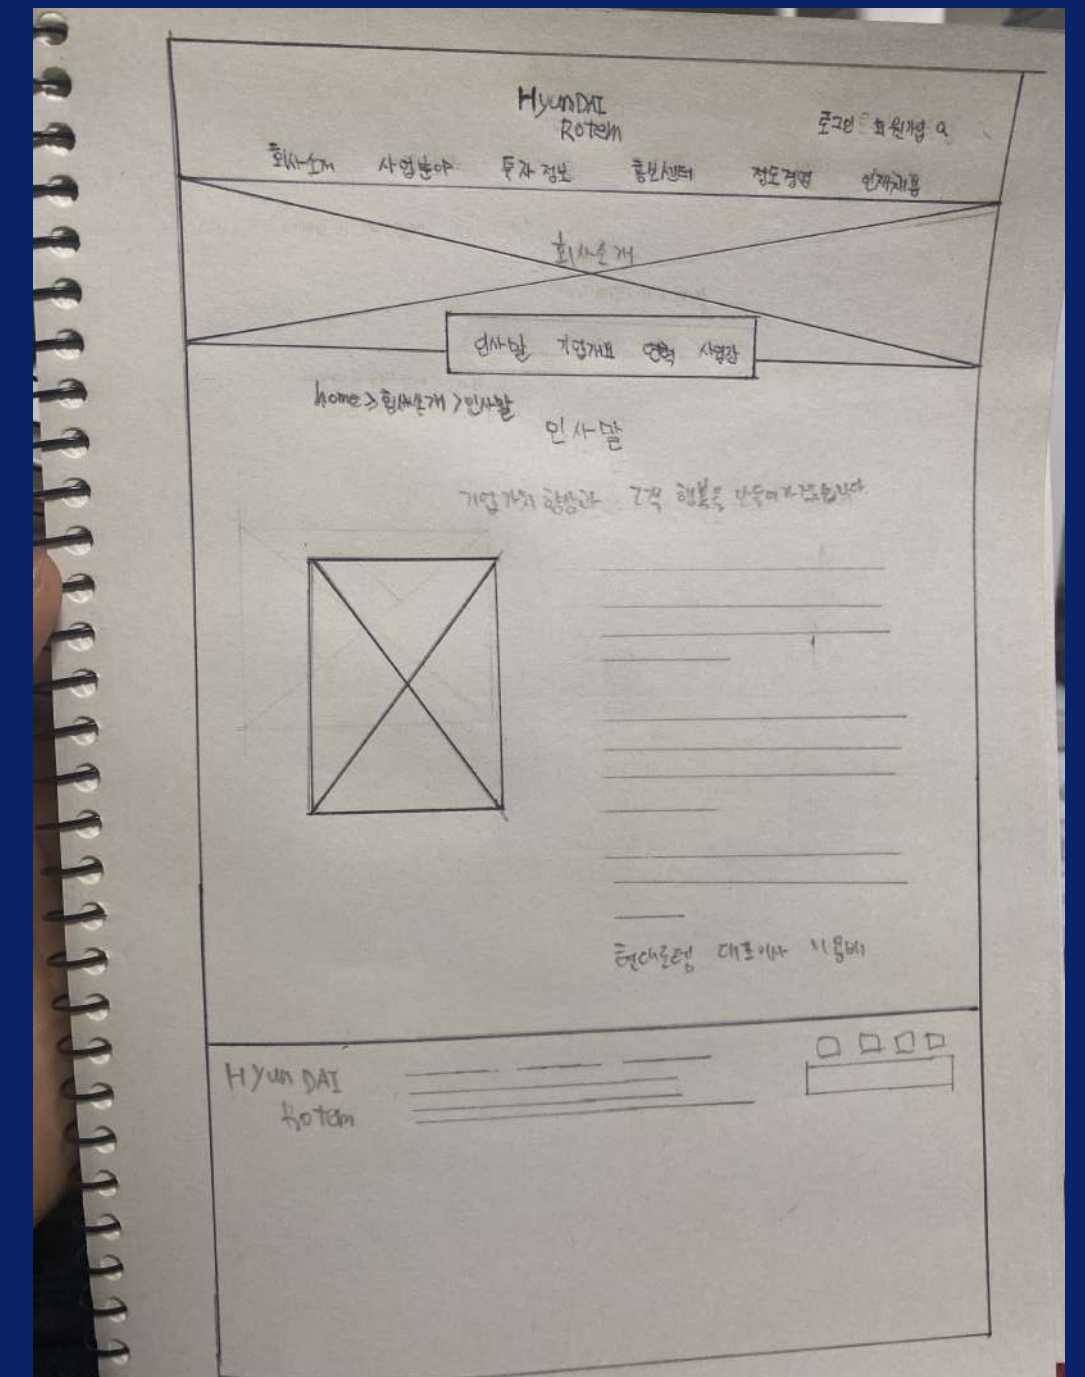 HyunDAI
Rotem
로그인 회원가입
회사소개 사업분야 투자정보 홍보센터 정도경영 인재채용
회사소개
인사말 기업개요 연혁 사업장
home > 회사소개 > 인사말
인사말
기업가치 향상과 고객 행복을 만들어가겠습니다.
현대로템 대표이사 이용배
HyunDAI
Rotem